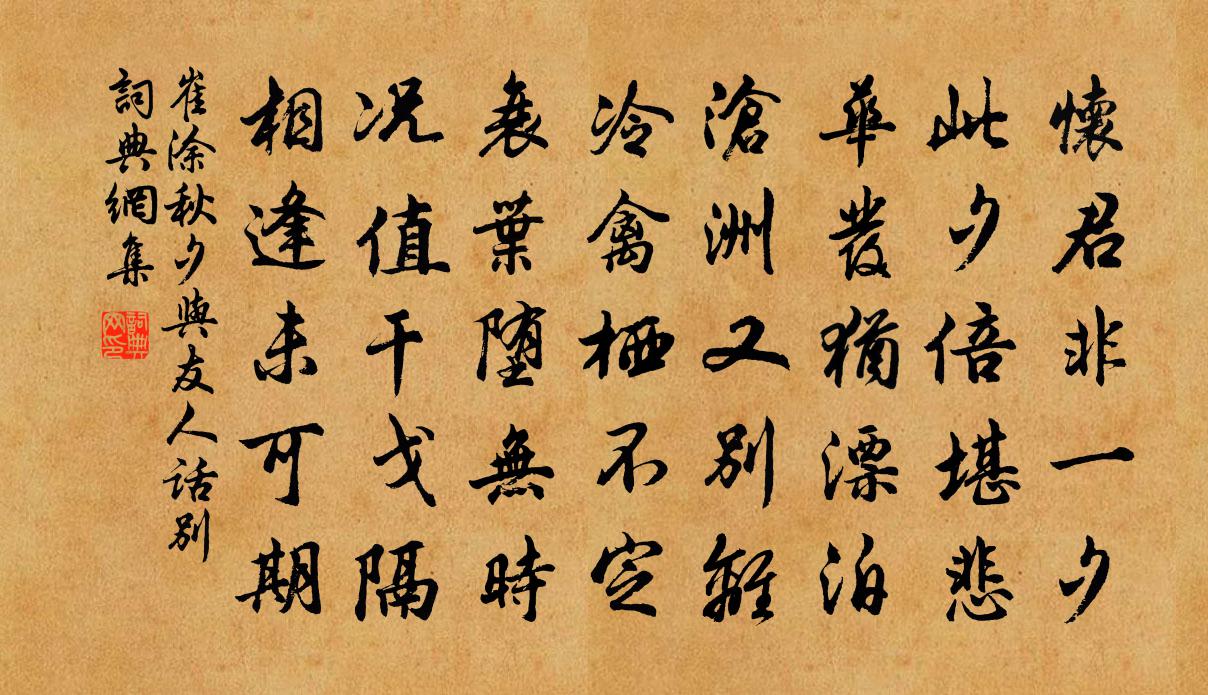 懷君非一夕
此夕倍堪悲
華發猶漂泊
滄洲又別離
冷禽栖不定
衰葉墮無時
況值干戈隔
相逢未可期
崔涂秋夕與友人話別
詞典網集
詞典
网印